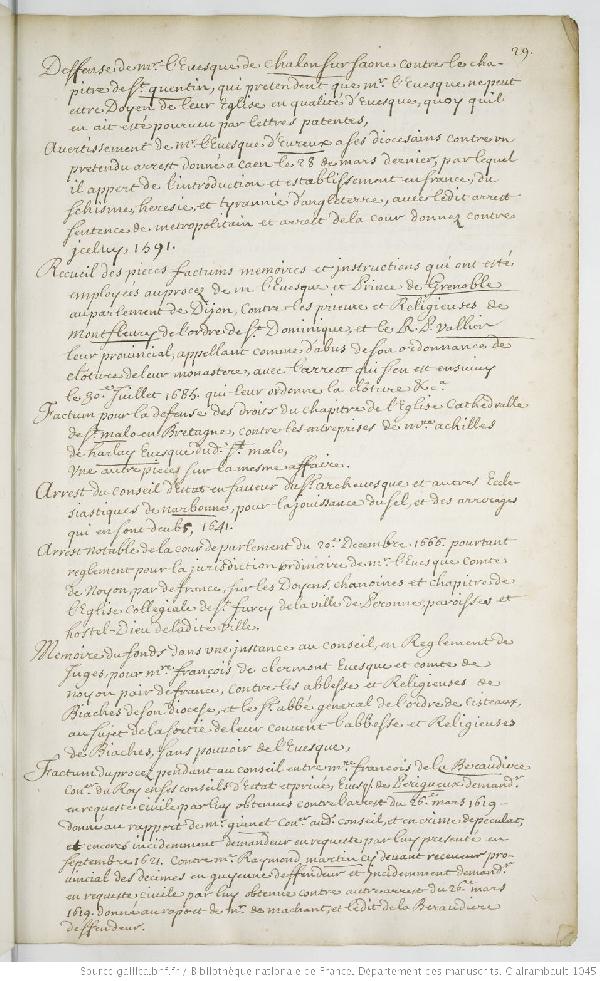 29.
Deffense de mr. l'Evesque de Chalon sur saone contre le cha-
pitre de st. quentin, qui pretendent que mr. l'Evesque ne peut
estre Doyen de leur Eglise en qualité d'Evesque, quoy quil
en ait esté pourveu par lettres patentes,
Avertissement de mr. l'Evesque d'Evreux a ses diocesains contre un
pretendu arrest donné a Caen le 28 de mars dernier, par lequel
il appert de l'introduction et establissement en france, du
schisme, heresie, et tyrannie d'angleterre, avec ledit arrest
sentence de metropolitain et arrest de la cour donnez contre
jceluy, 1591.
Recueil des pieces factums memoires et instructions qui ont esté
employés au procez de m l'Evesque et Prince de Grenoble
au parlement de Dijon, contre les prieure et Religieuses de
montfleury de l'ordre de st. Dominique, et le R. P. Vallier
leur provincial, appellant comme d'abus de son ordonnance de
clôture de leur monastere, avec l'arrest qui s'en est ensuivy
le 30e. Juillet 1685. qui leur ordonne la clôture &ca.
Factum pour la defense des droits du chapitre de l'Eglise Cathedralle
de st. malo en Bretagne, contre les entreprises de mre. achilles
de harlay Evesque dud. st. malo,
Une autre pieces sur la mesme affaire.
Arrest du conseil d'Estat en faveur du sr. archevesque et autres Eccle-
siastiques de narbonne, pour la jouissance du sel, et des arrerages
qui en sont deubs, 1641.
Arrest notable de la cour de parlement du 20e. Decembre 1666. pourtant
reglement pour la jurisdiction ordinaire de mr. l'Evesque Comte
de Noyon, pair de france, sur les Doyens, chanoines et chapitre de
l'Eglise Collegiale de st. fursy de la ville de Peronne, paroisses et
hostel-Dieu de ladite ville.
Memoire du fonds dans une instance au conseil, en Reglement de
Juges, pour mre. françois de clermont Evesque et comte de
noyon pair de france, contre les abbesse et Religieuses de
Biaches de son diocese, et le sr. abbé general de l'ordre de Cisteaux,
au sujet de la sortie de leur couvent l'abbesse et Religieuses
de Biaches, sans pouvoir de l'Evesque,
Factum du procez pendant au conseil entre mre. francois de la Beraudiere
Conr. du Roy en ses conseils d'Estat et privé, Evesq. de Perigueux demandr.
en requeste civile par luy obtenue contre l'arrest du 26e. mars 1619.
donné au rapport de mr. Conr. aud. conseil, et en crime de peculat,
et encores incidemment demandeur en requeste par luy presentée en
septembre 1621. Contre mr. Raymond martin cy devant receveur pro-
vincial des decimes en guyenne deffendeur et jncidemment demandr.
en requeste civile par luy obtenue contre autre arrest du 26e. mars
1619. donné au raport de mr. de machaut, et ledit de la Beraudiere
deffendeur.
Source gallica.bnf.fr / Bibliothèque nationale de France. Département des manuscrits. Clairambault 1045